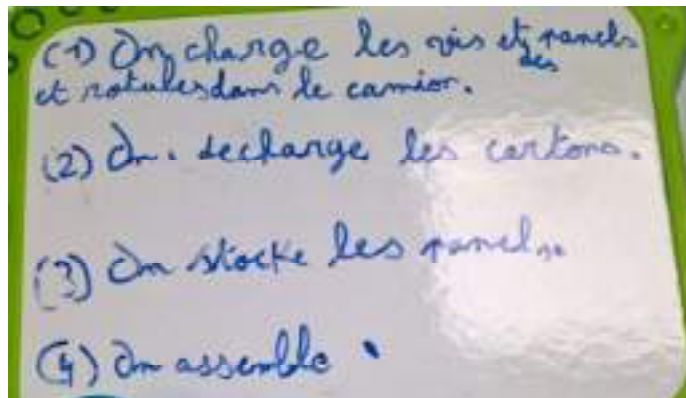 (1) On charge les vis et des panels
et rotules dans le camion.
(2) On. decharge les cartons.
(3) On stocke les panel..
(4) On assemble